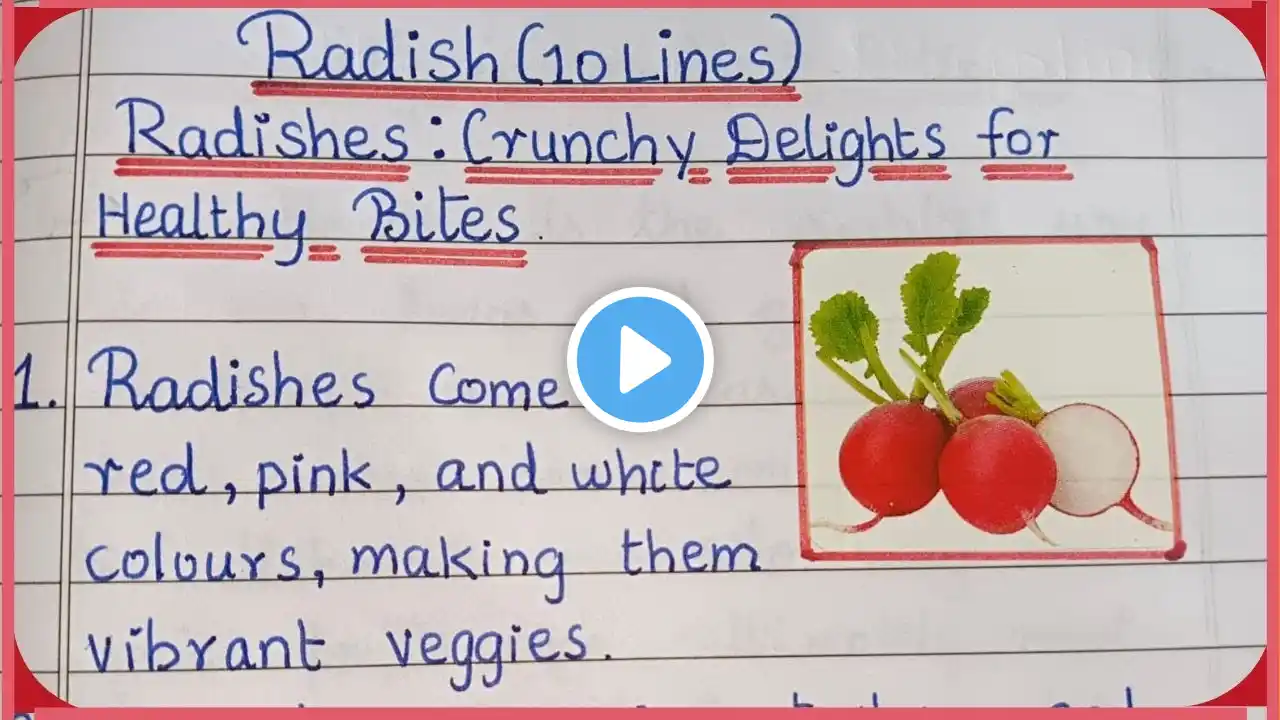 Radish (10 Lines)
Radishes: Crunchy Delights for
Healthy Bites.
1. Radishes Come
red, pink, and white
colours, making them
vibrant veggies.